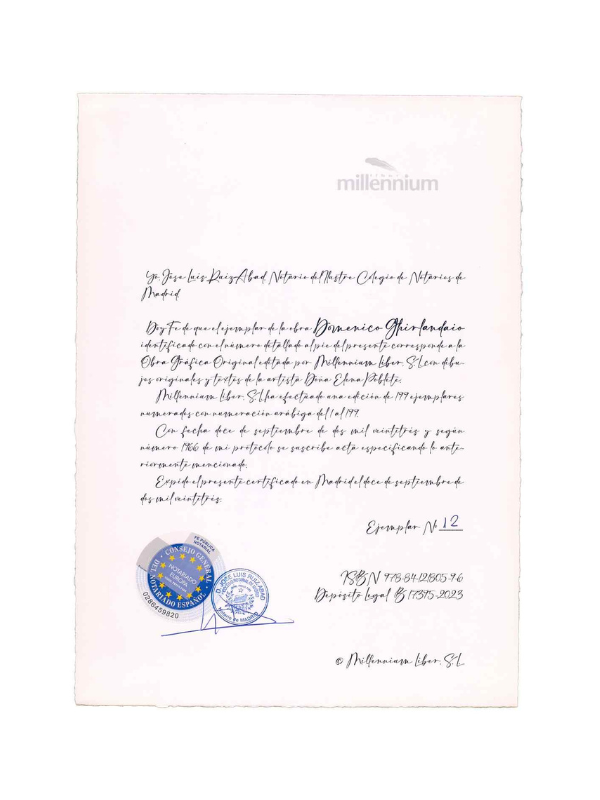 millennium
Yo, Jose Luis Ruiz Abad, Notario del Ilustre Colegio de Notarios de
Madrid
Doy Fe de que el ejemplar de la obra Domenico Ghirlandaio
identificado con el número detallado al pie del presente corresponde a la
Obra Gráfica Original editada por Millennium Liber, S.L. con dibu-
jos originales y textos de la artista Doña Elena Poblete.
Millennium Liber, S.L. ha efectuado una edición de 199 ejemplares
numerados con numeración arábiga del 1 al 199.
Con fecha doce de septiembre de dos mil veintitrés y según
número 1966 de mi protocolo se suscribe acta especificando lo ante-
riormente mencionado.
Expido el presente certificado en Madrid el doce de septiembre de
dos mil veintitrés.
Ejemplar Nº 12
FE PÚBLICA
NOTARIAL
CONSEJO GENERAL
DEL NOTARIADO ESPAÑOL
NOTARIADO
EUROPA
0286459820
D. JOSE LUIS RUIZ ABAD
ISBN 978-84-121805-9-6
Depósito Legal B 17395-2023
© Millennium Liber, S.L.